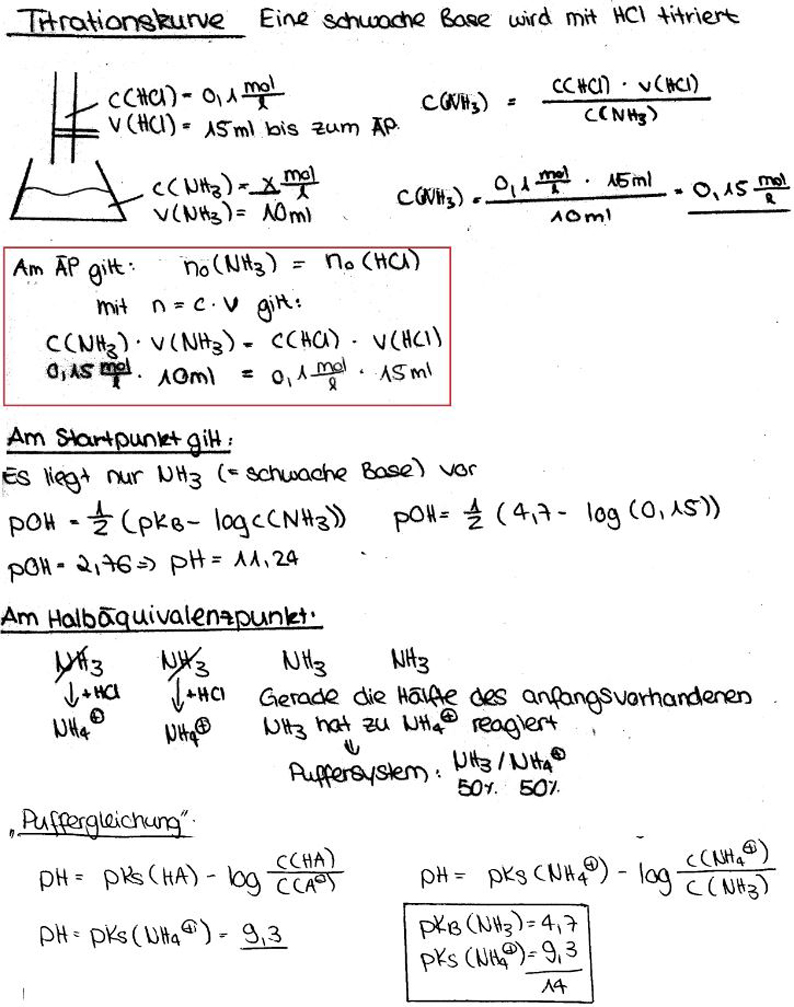 Titrationskurve Eine schwache Base wird mit HCl titriert
c(HCl) = 0,1 mol/l
V(HCl) = 15ml bis zum ÄP.
c(NH₃) = c(HCl) · V(HCl) / c(NH₃)
c(NH₃) = x mol/l
V(NH₃) = 10ml
c(NH₃) = 0,1 mol/l · 15ml / 10ml = 0,15 mol/l
Am ÄP gilt: n₀(NH₃) = n₀(HCl)
mit n = c · V gilt:
c(NH₃) · V(NH₃) = c(HCl) · V(HCl)
0,15 mol/l · 10ml = 0,1 mol/l · 15ml
Am Startpunkt gilt:
Es liegt nur NH₃ (= schwache Base) vor
pOH = 1/2 (pKB - log c(NH₃)) pOH = 1/2 (4,7 - log (0,15))
pOH = 2,76 => pH = 11,24
Am Halbäquivalenzpunkt:
NH₃ NH₃ NH₃ NH₃
↓+HCl ↓+HCl Gerade die Hälfte des anfangsvorhandenen
NH₄⊕ NH₄⊕ NH₃ hat zu NH₄⊕ reagiert
⇓
Puffersystem: NH₃ / NH₄⊕
50% 50%
„Puffergleichung"
pH = pKs(HA) - log c(HA) / c(A⊖)
pH = pKs(NH₄⊕) - log c(NH₄⊕) / c(NH₃)
pH = pKs(NH₄⊕) = 9,3
pKB(NH₃) = 4,7
pKs(NH₄⊕) = 9,3
14